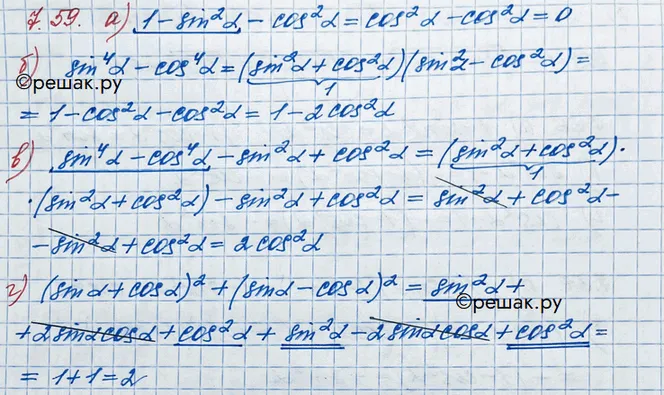 7.59. а) 1-sin²α - cos²α = cos²α - cos²α = 0
б) sin⁴α - cos⁴α = (sin²α + cos²α)(sin²α - cos²α) =
1
©решак.ру
= 1 - cos²α - cos²α = 1 - 2cos²α
в) sin⁴α - cos⁴α - sin²α + cos²α = (sin²α + cos²α)·
1
·(sin²α + cos²α) - sin²α + cos²α = sin²α + cos²α -
- sin²α + cos²α = 2cos²α
г) (sinα + cosα)² + (sinα - cosα)² = sin²α +
©решак.ру
+ 2sinαcosα + cos²α + sin²α - 2sinαcosα + cos²α =
= 1+1=2